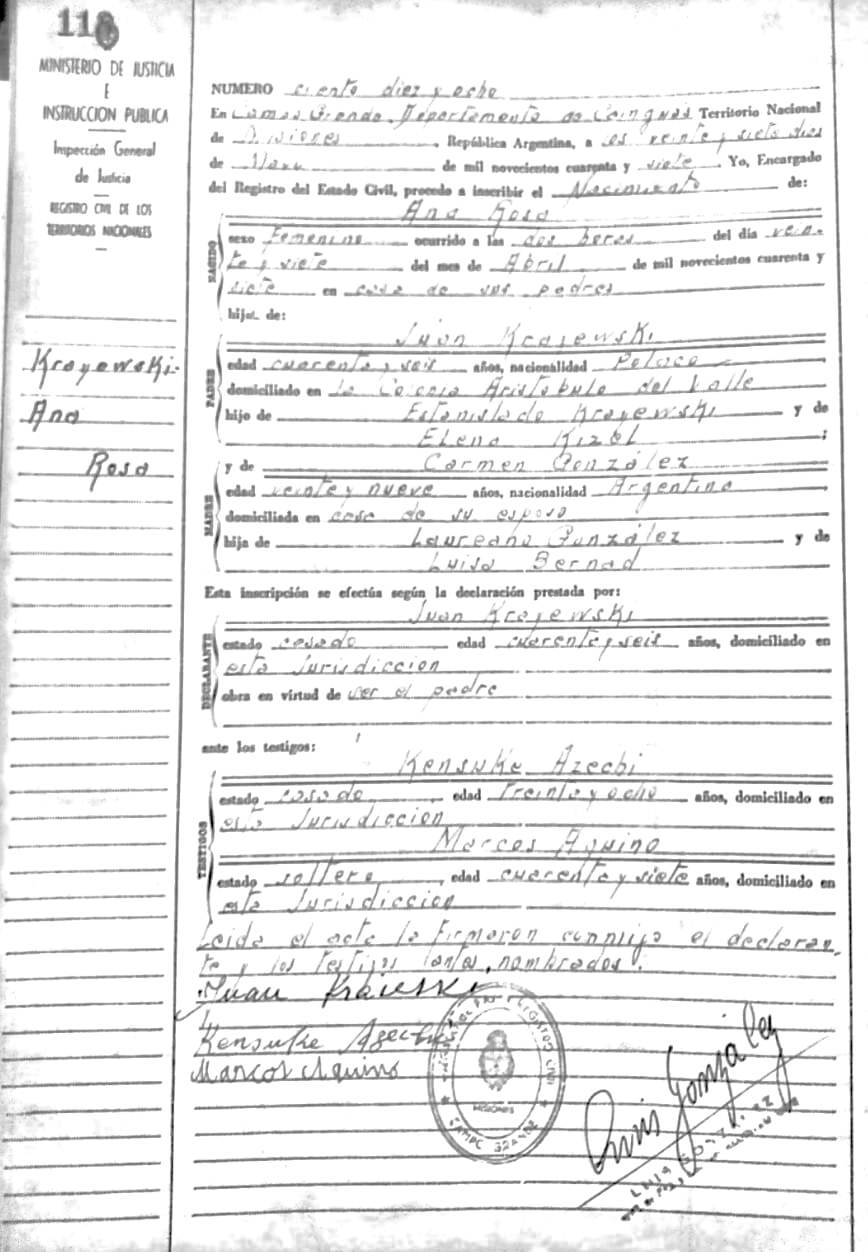 118
MINISTERIO DE JUSTICIA
E
INSTRUCCION PUBLICA
Inspección General
de Justicia
REGISTRO CIVIL DE LOS
TERRITORIOS NACIONALES
Krayewski-
Ana
Rosa
NUMERO ciento diez y ocho
En Campo Grande Departamento de Cainguas Territorio Nacional
de Misiones, República Argentina, a los veinte y siete dias
de Mayo de mil novecientos cuarenta y siete. Yo, Encargado
del Registro del Estado Civil, procedo a inscribir el Nacimiento de:
Ana Rosa
NACIDO
sexo Femenino ocurrido a las dos horas del día vein-
te y siete del mes de Abril de mil novecientos cuarenta y
siete en casa de sus padres
hija de:
PADRE
Juan Krajewski
edad cuarenta y seis años, nacionalidad Polaco
domiciliado en la Colonia Aristobulo del Valle
hijo de Estanislado Krayewski y de
Elena Kizel;
MADRE
y de Carmen González
edad veinte y nueve años, nacionalidad Argentina
domiciliada en casa de su esposo
hija de Laureano González y de
Luisa Bernad
Esta inscripción se efectúa según la declaración prestada por:
DECLARANTE
Juan Krajewski
estado casado edad cuarenta y seis años, domiciliado en
esta Jurisdiccion
obra en virtud de ser el padre
ante los testigos:
TESTIGOS
Kensuke Azechi
estado casado, edad Treinta y ocho años, domiciliado en
esta Jurisdiccion
Marcos Aquino
estado soltero, edad cuarenta y siete años, domiciliado en
esta Jurisdiccion
Leida el acta la firmaron conmigo el declaran-
te y los testigos antes nombrados.
Juan Kraieski
Kensuke Azechi
Marcos Aquino
REGISTRO CIVIL
MISIONES
CAMPO GRANDE
Luis Gonzalez
LUIS GONZALEZ